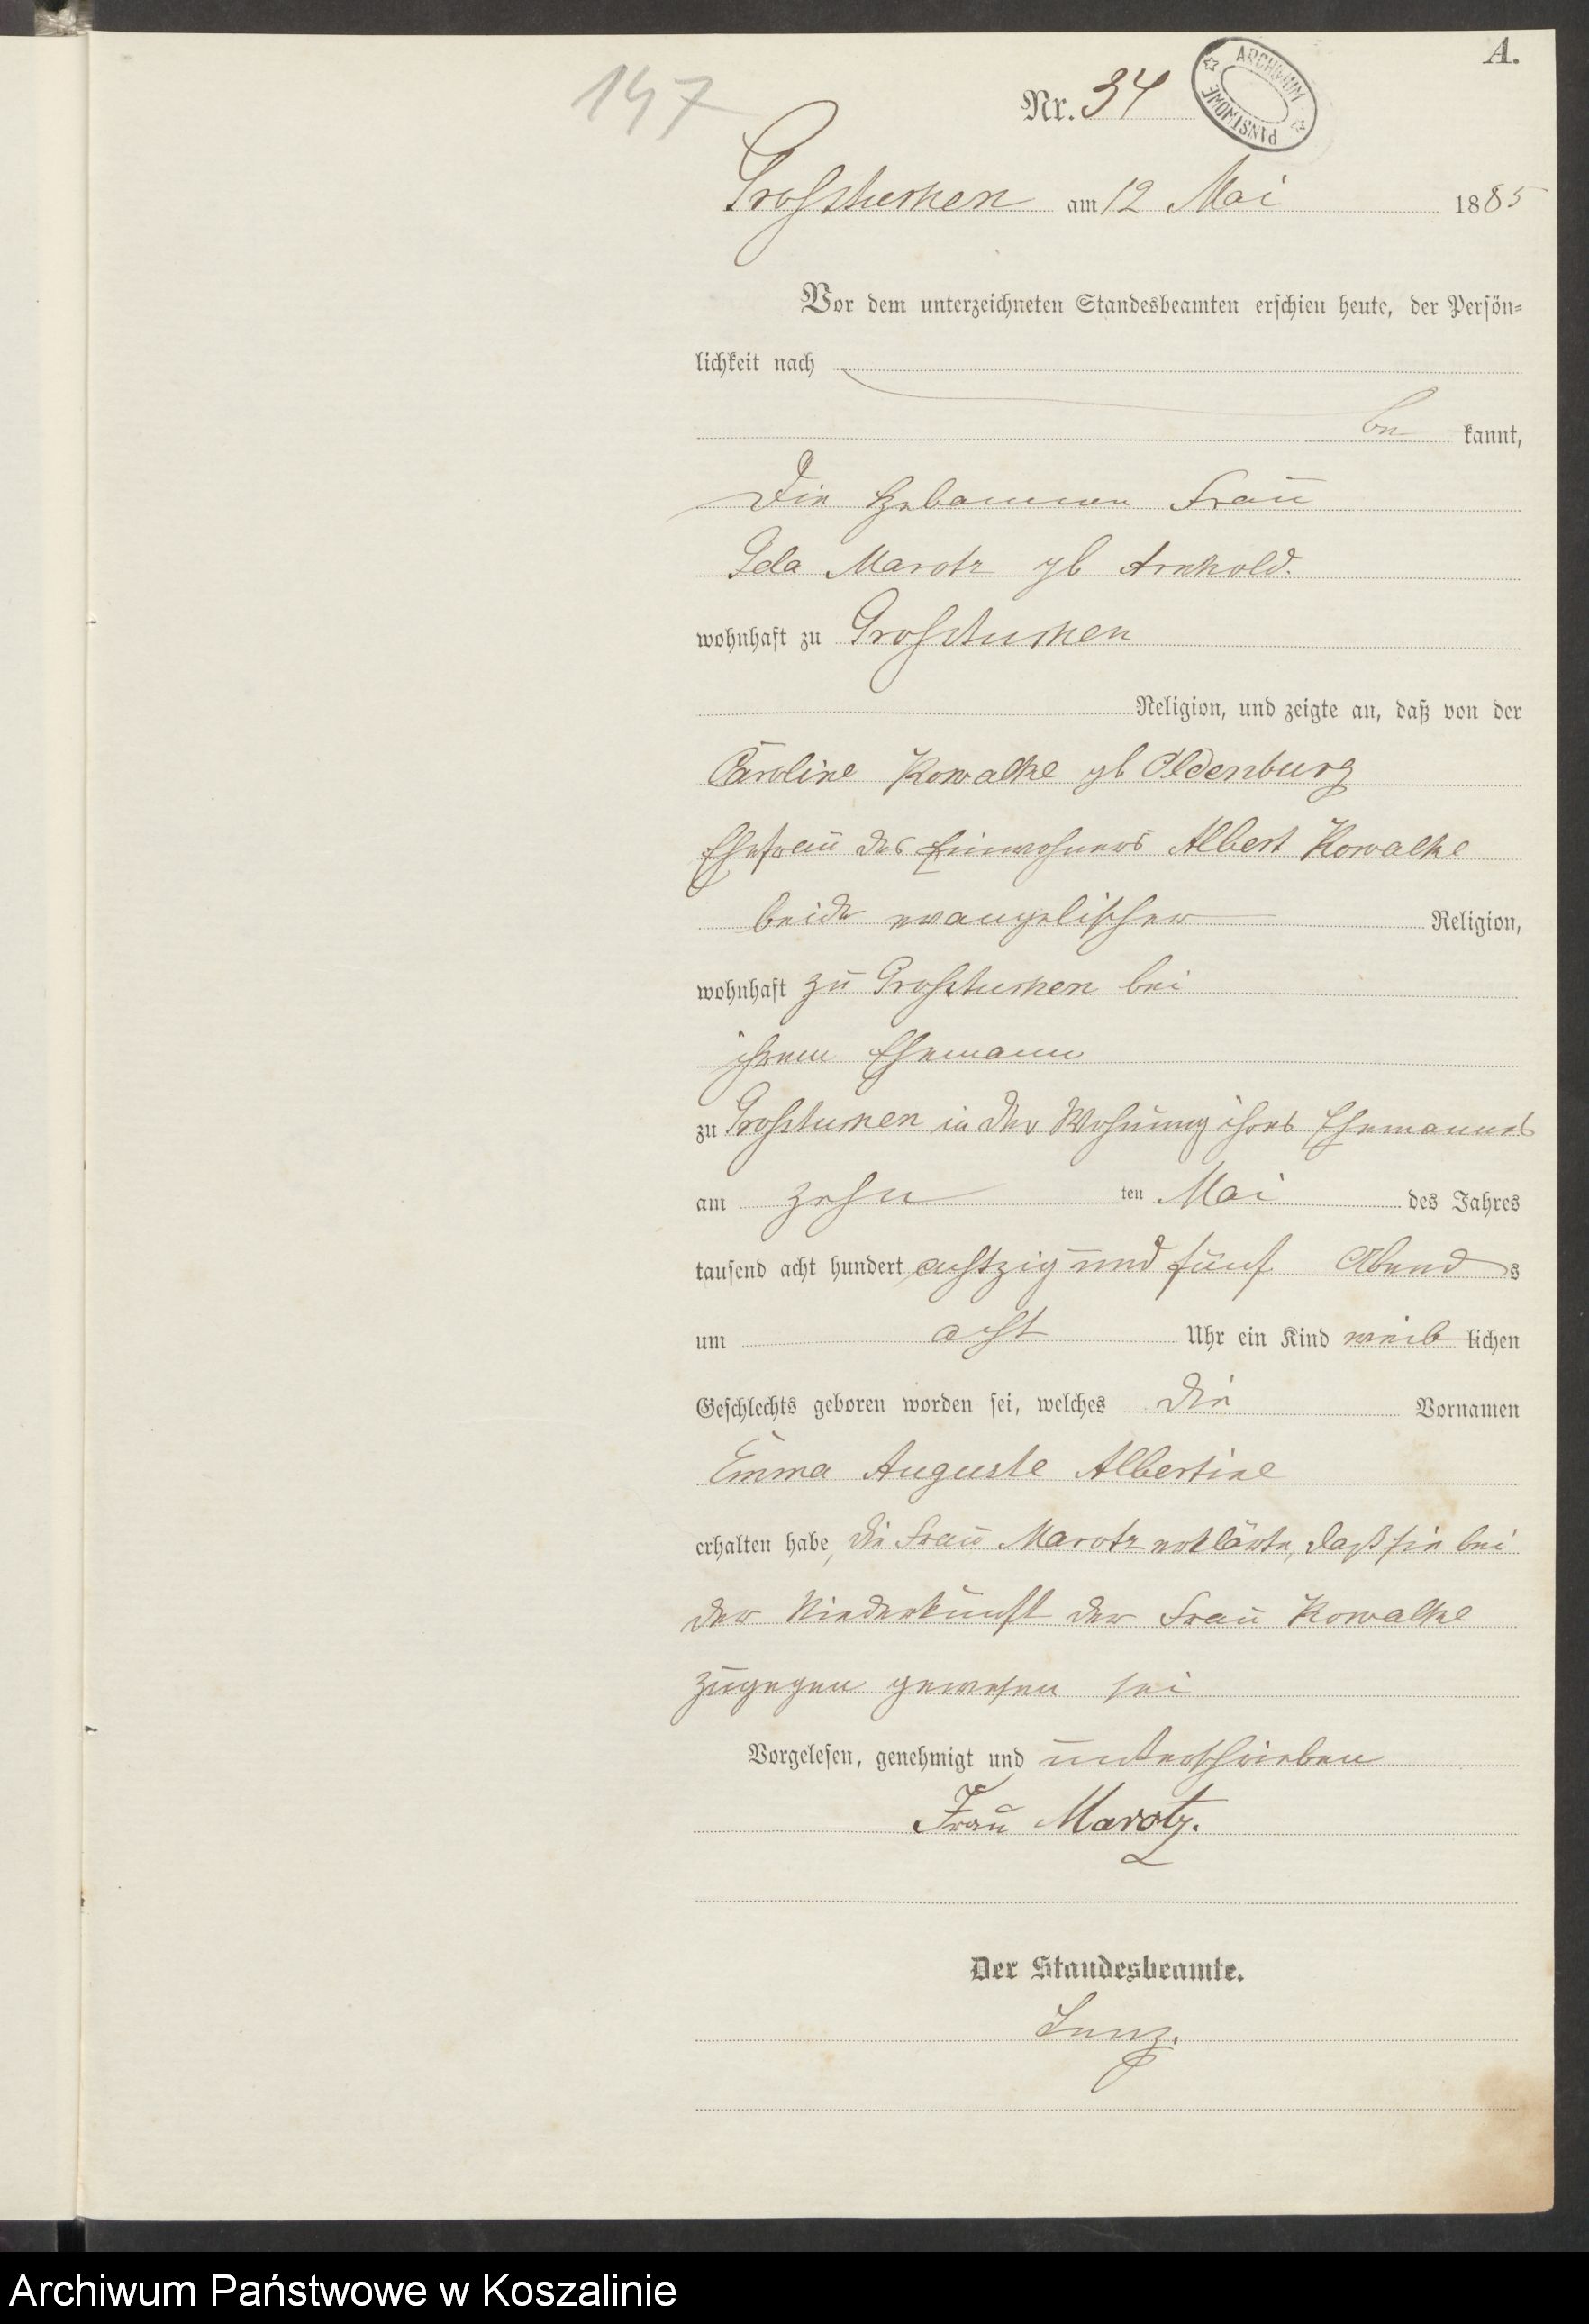 A.
147
Nr. 34
ARCHIWUM PAŃSTWOWE
Grosstuchen am 12 Mai 1885
Vor dem unterzeichneten Standesbeamten erschien heute, der Persön-
lichkeit nach
be kannt,
die Hebamme Frau
Ida Marotz gb Arnhold.
wohnhaft zu Grosstuchen
Religion, und zeigte an, daß von der
Caroline Kowalke gb Oldenburg
Ehefrau des Einwohners Albert Kowalke
beide evangelischer Religion,
wohnhaft zu Grosstuchen bei
ihrem Ehemann
zu Grosstuchen in der Wohnung ihres Ehemannes
am zehn ten Mai des Jahres
tausend acht hundert achtzig und fünf Abend s
um acht Uhr ein Kind weib lichen
Geschlechts geboren worden sei, welches die Vornamen
Emma Auguste Albertine
erhalten habe, die Frau Marotz erklärte, daß sie bei
der Niederkunft der Frau Kowalke
zugegen gewesen sei
Vorgelesen, genehmigt und unterschrieben
Frau Marotz.
Der Standesbeamte.
Archiwum Państwowe w Koszalinie